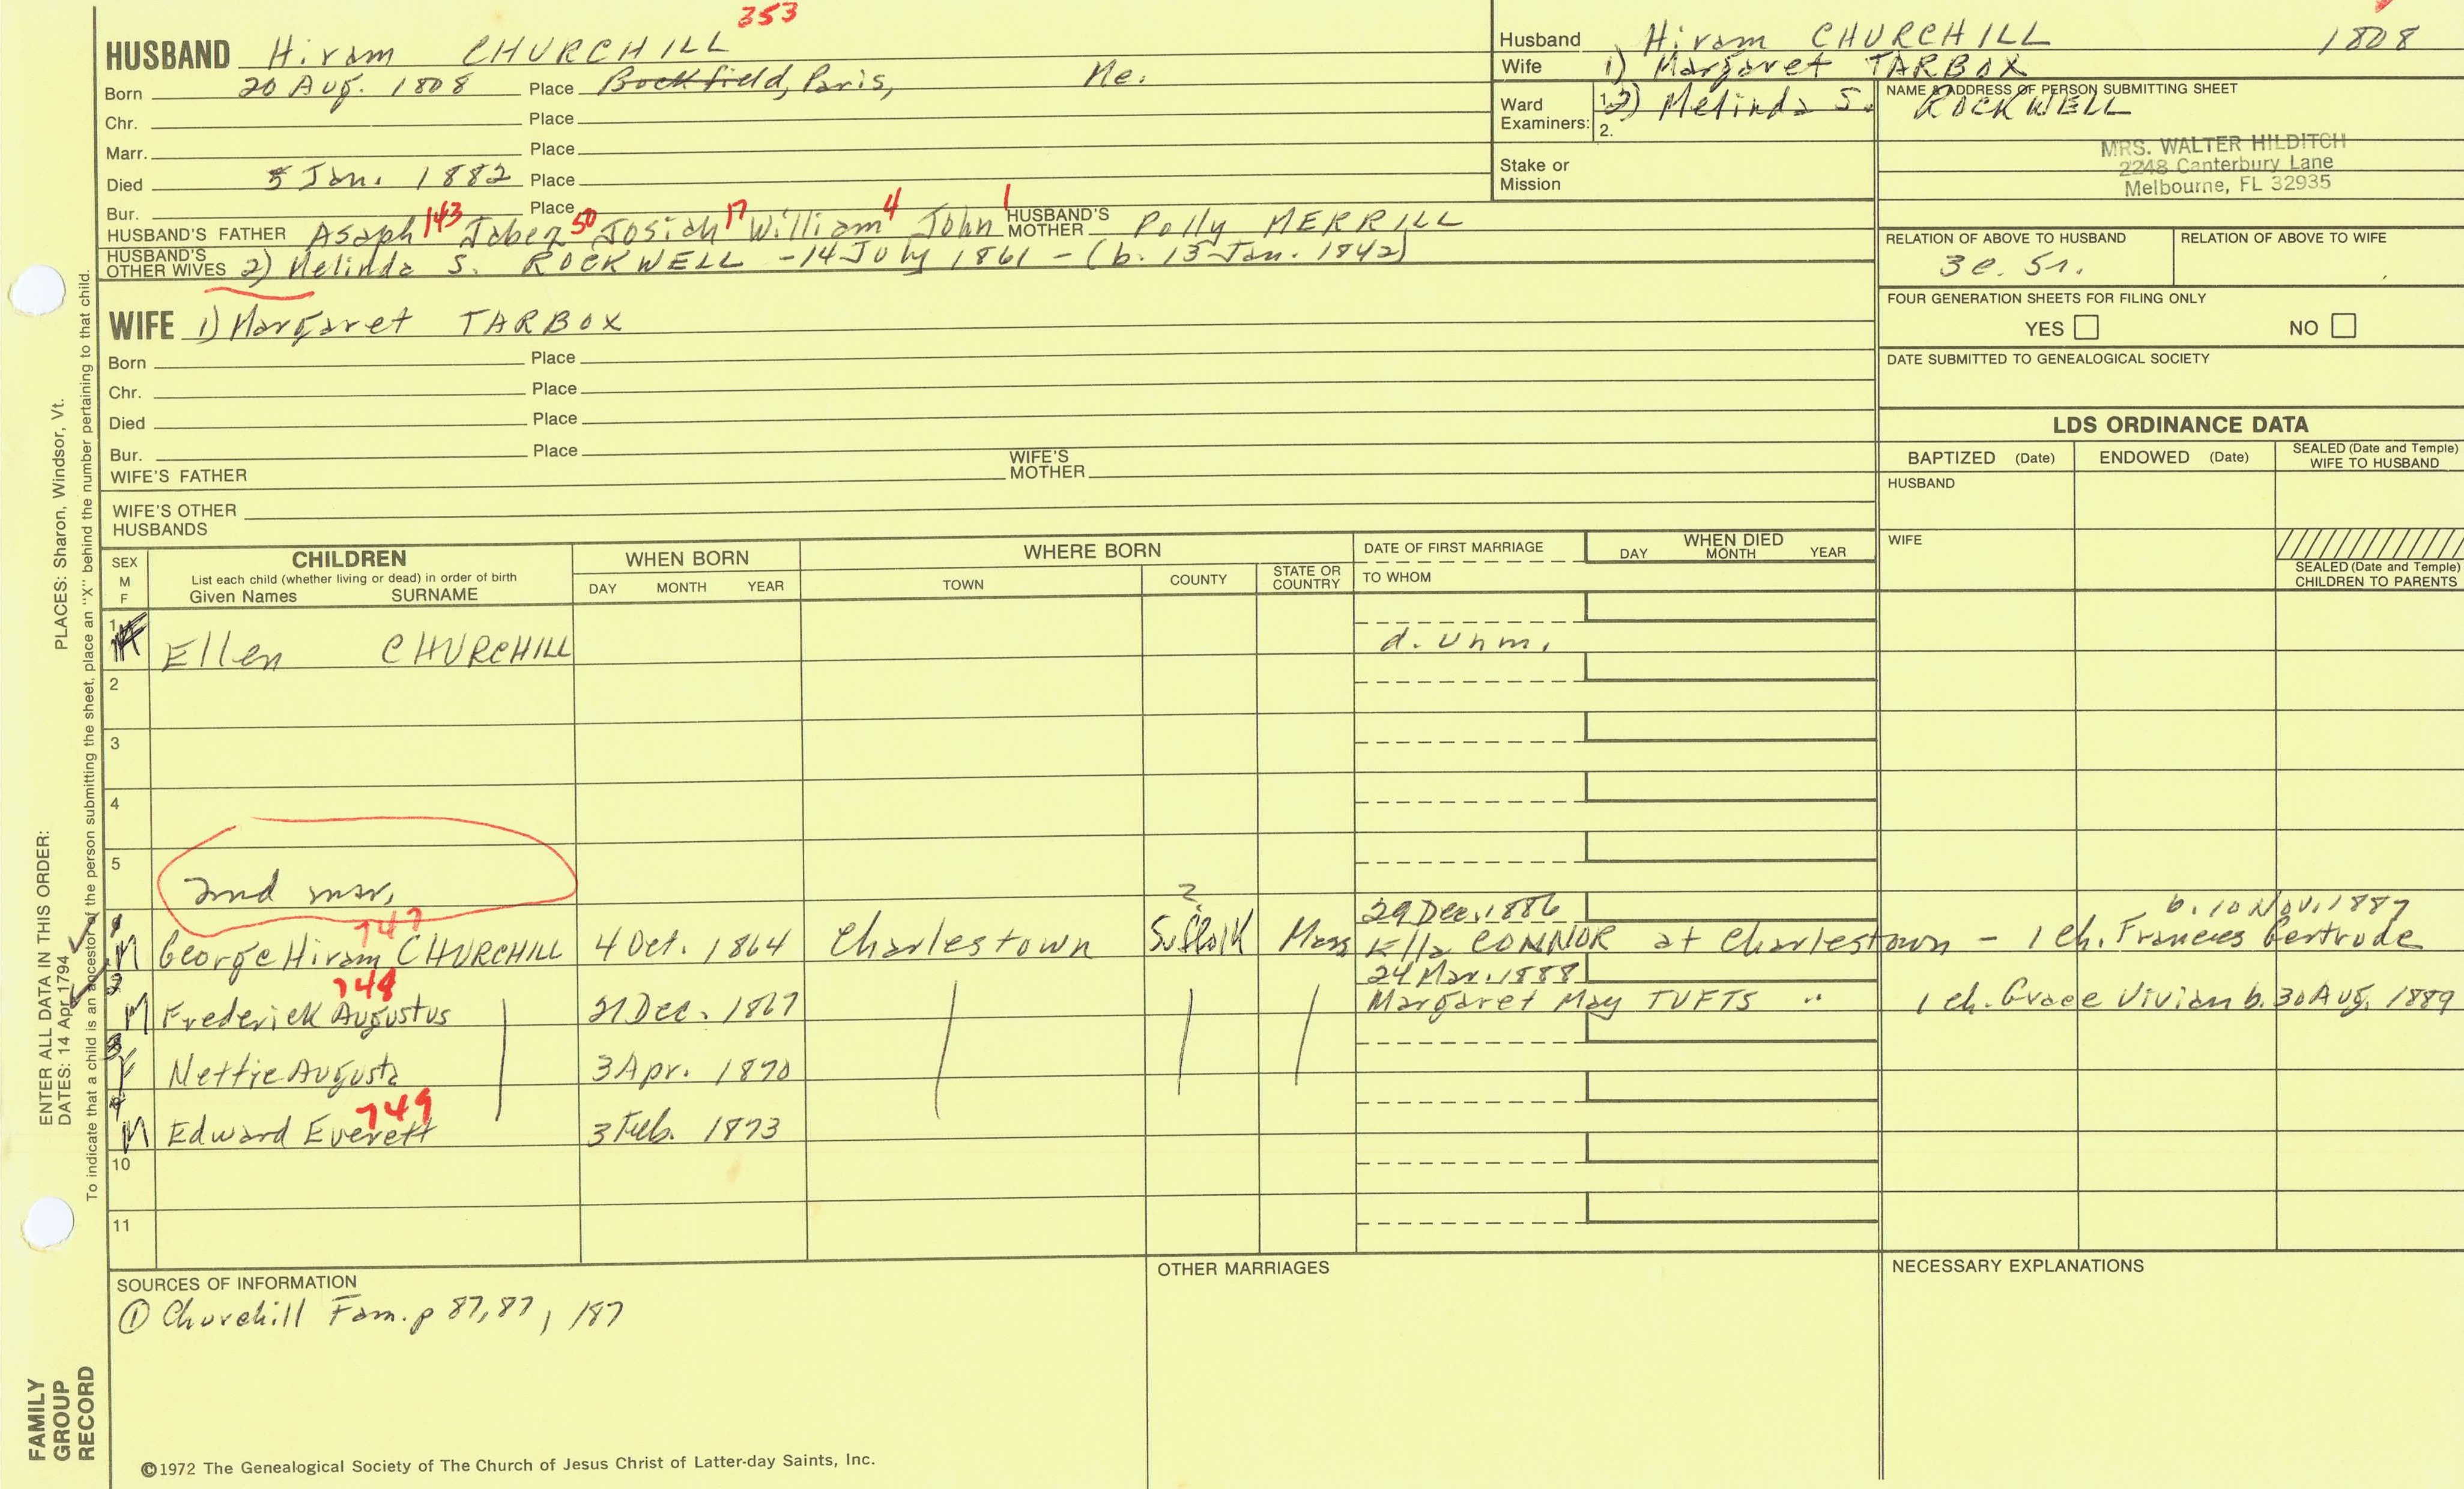 353
HUSBAND Hiram CHURCHILL
Born 20 Aug. 1808 Place Buckfield, Paris, Me.
Chr. Place
Marr. Place
Died 5 Jan. 1882 Place
Bur. Place
HUSBAND'S FATHER Asaph 143 Jabez 50 Josiah 17 William 4 John 1 HUSBAND'S MOTHER Polly MERRILL
HUSBAND'S OTHER WIVES 2) Melinda S. ROCKWELL - 14 July 1861 - (b. 15 Jan. 1842)
WIFE 1) Margaret TARBOX
Born Place
Chr. Place
Died Place
Bur. Place
WIFE'S FATHER WIFE'S MOTHER
WIFE'S OTHER HUSBANDS
Husband Hiram CHURCHILL 1808
Wife 1) Margaret TARBOX
Ward Examiners: 1. 2) Melinda S. ROCKWELL
2.
Stake or Mission
NAME & ADDRESS OF PERSON SUBMITTING SHEET
MRS. WALTER HILDITCH
2248 Canterbury Lane
Melbourne, FL 32935
RELATION OF ABOVE TO HUSBAND RELATION OF ABOVE TO WIFE
3c. 5r.
FOUR GENERATION SHEETS FOR FILING ONLY
YES NO
DATE SUBMITTED TO GENEALOGICAL SOCIETY
LDS ORDINANCE DATA
BAPTIZED (Date) ENDOWED (Date) SEALED (Date and Temple) WIFE TO HUSBAND
HUSBAND
WIFE
SEALED (Date and Temple) CHILDREN TO PARENTS
SEX M F
CHILDREN
List each child (whether living or dead) in order of birth
Given Names SURNAME
WHEN BORN
DAY MONTH YEAR
WHERE BORN
TOWN COUNTY STATE OR COUNTRY
DATE OF FIRST MARRIAGE
TO WHOM
WHEN DIED
DAY MONTH YEAR
1 Ellen CHURCHILL d. unm.
2
3
4
5
2nd mar.
747 ? 29 Dec. 1886 b. 10 Nov. 1887
1 M George Hiram CHURCHILL 4 Oct. 1864 Charlestown Suffolk Mass Ella CONNOR at Charlestown - 1 ch. Frances Gertrude
748 24 Mar. 1888
2 M Frederick Augustus 21 Dec. 1867 Margaret May TUFTS " 1 ch. Grace Vivian b. 30 Aug. 1889
3 F Nettie Augusta 3 Apr. 1870
749
4 M Edward Everett 3 Feb. 1873
10
11
SOURCES OF INFORMATION
① Churchill Fam. p 87, 87, 187
OTHER MARRIAGES
NECESSARY EXPLANATIONS
©1972 The Genealogical Society of The Church of Jesus Christ of Latter-day Saints, Inc.
FAMILY GROUP RECORD
ENTER ALL DATA IN THIS ORDER:
DATES: 14 Apr 1794
PLACES: Sharon, Windsor, Vt.
To indicate that a child is an ancestor of the person submitting the sheet, place an "X" behind the number pertaining to that child.